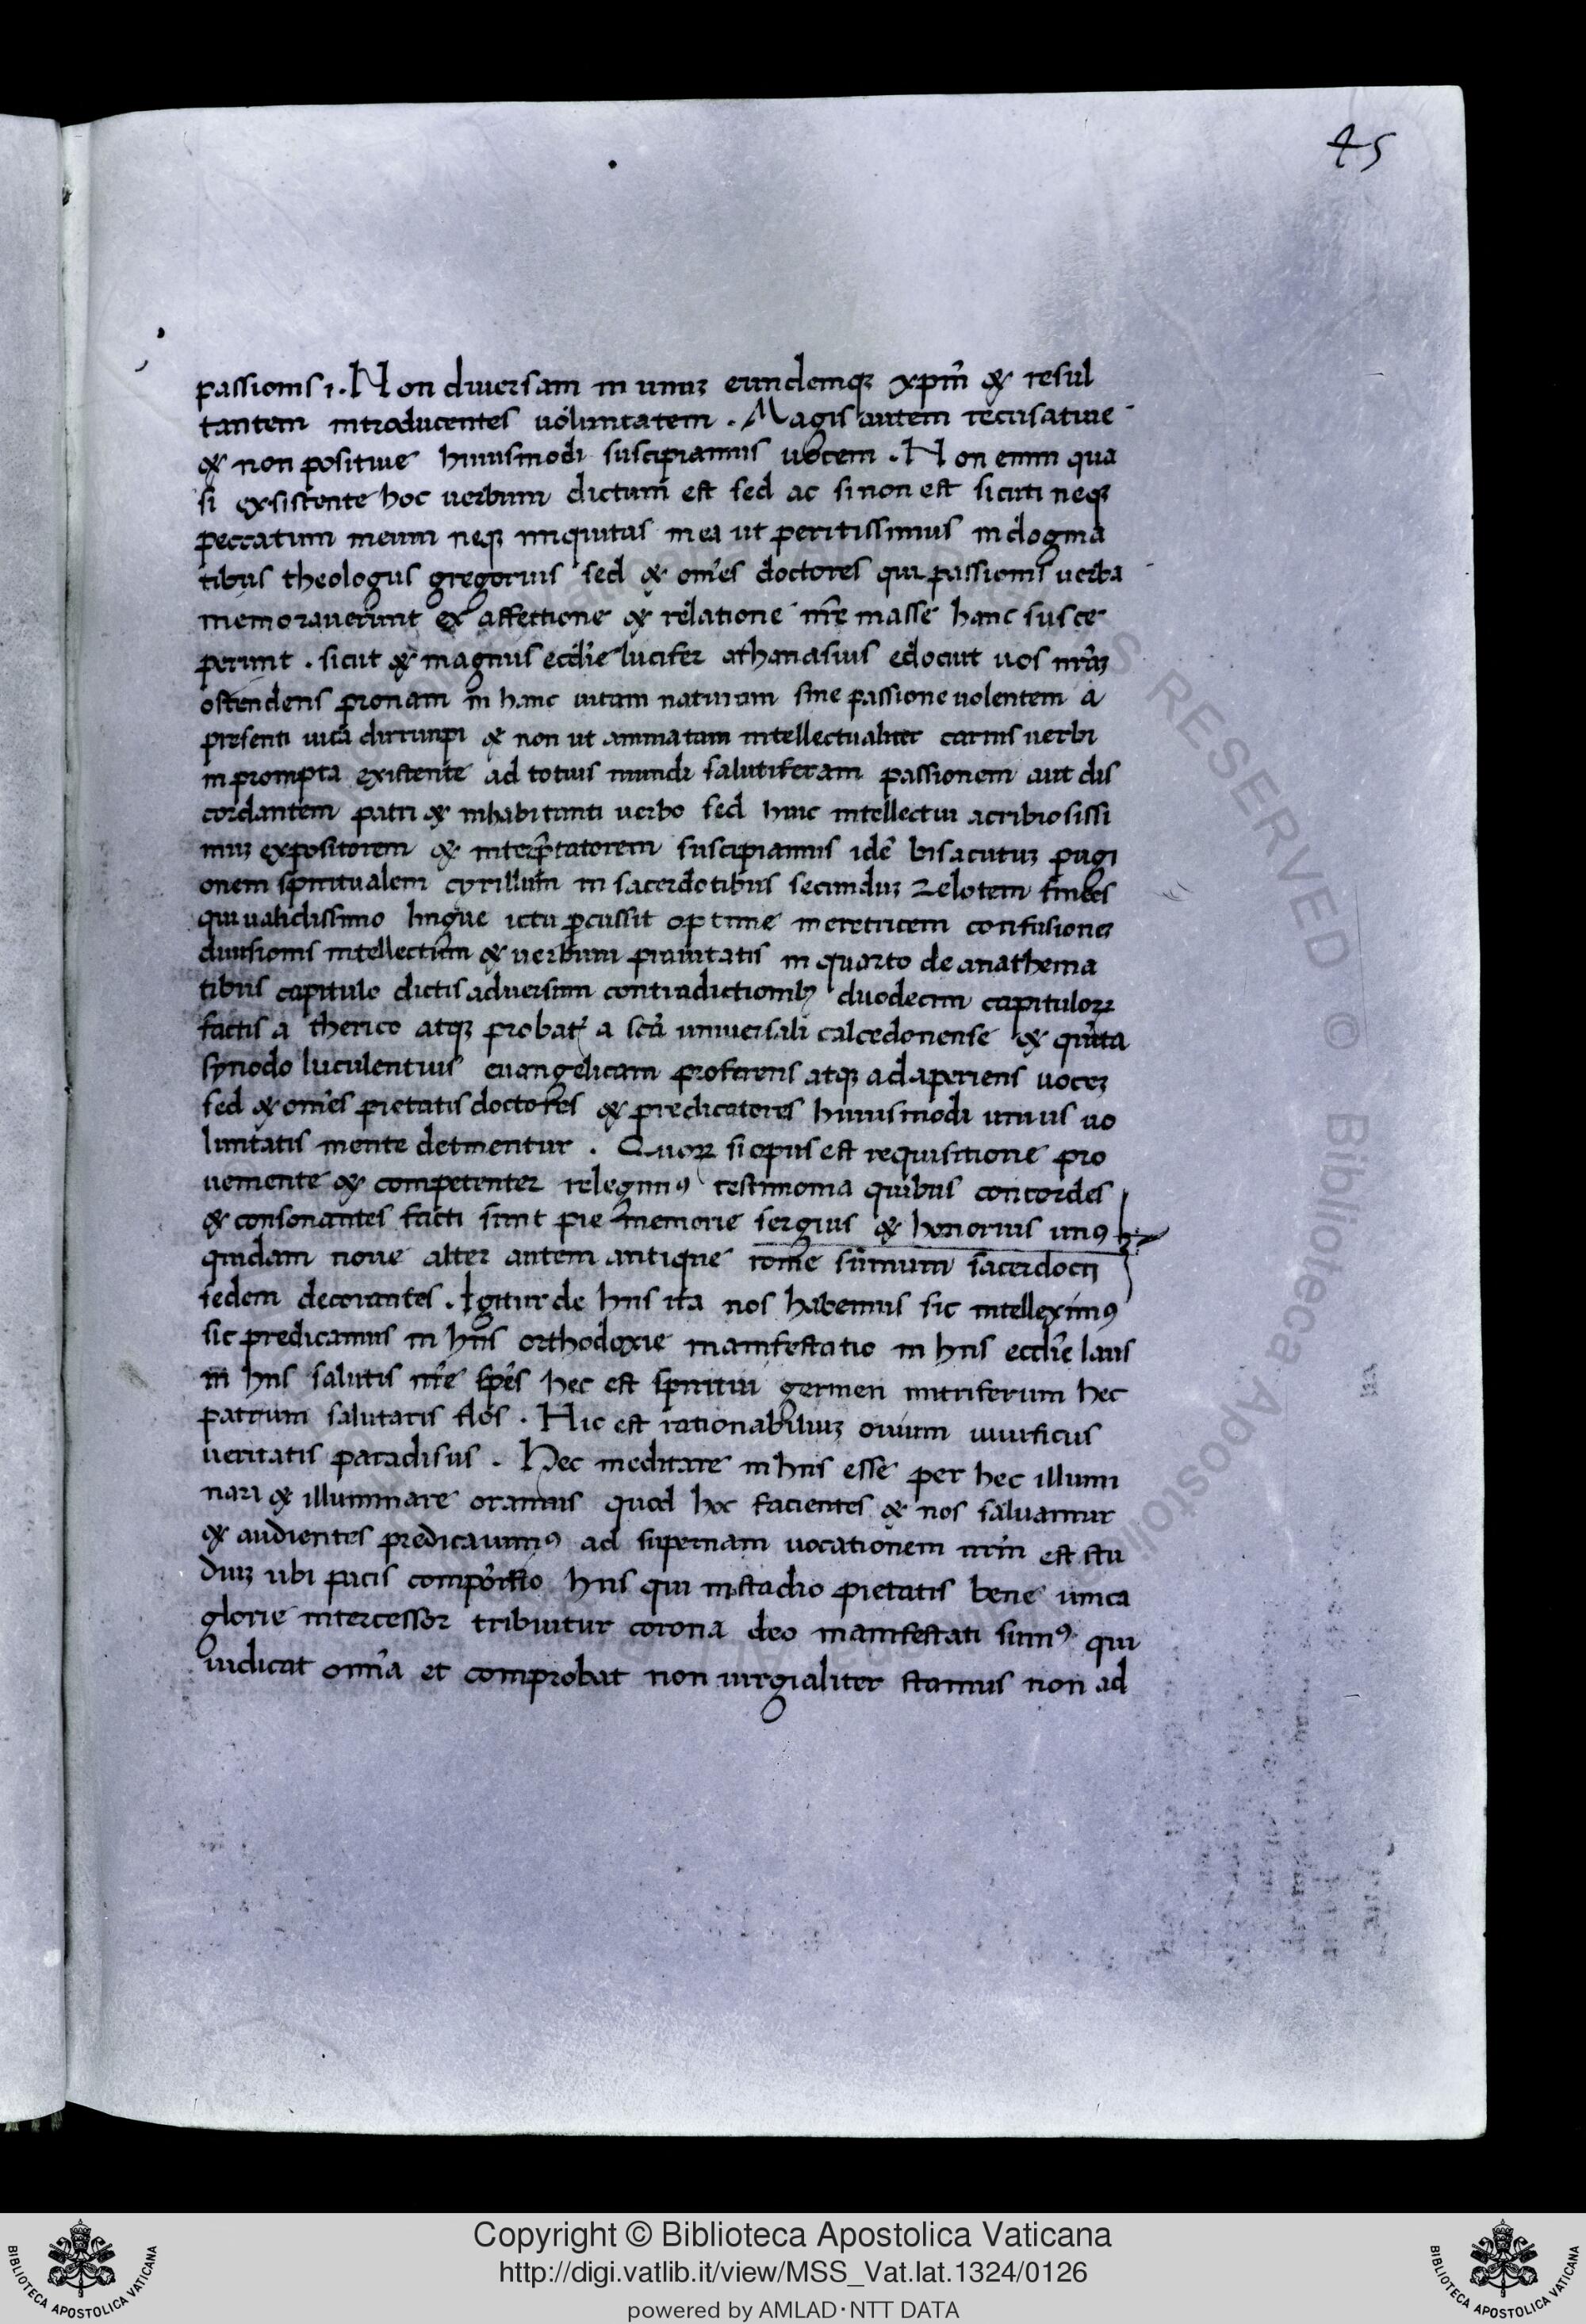 45
passionis ĩ. Non diuersam in unuꝫ eundemqꝫ xp̃m & resul
tantem introducentes uoluntatem . Magis autem recusatiue
& non positiue huiusmodi suscipiamus uocem . Non enim qua
si exsistente hoc uerbum dictum est sed ac si non est sicuti neqꝫ
peccatum meum neqꝫ iniquitas mea ut peritissimus in dogma
tibus theologus gregorius sed & om̃es doctores qui passionis uerba
memorauerunt ex affectione & relatione nr̃e masse hanc susce
perunt . sicut & magnus eccl̃ie lucifer athanasius edocuit uos nr̃aꝫ
ostendens pronam in hanc uitam naturam sine passione uolentem a
presenti uita dirrumpi & non ut animatam intellectualiter carnis uerbi
in prompta existente ad totius mundi salutiferam passionem aut dis
cordantem patri & inhabitanti uerbo sed huic intellectui acribiosissi
muꝫ expositorem & interp̃tatorem suscipiamus idẽ bisacutuꝫ pugi
onem spiritualem cyrillum in sacerdotibus secunduꝫ zelotem finees
qui ualidissimo lingue ictu ꝑcussit optime meretricem confusioneꝫ
diuisionis intellectum & uerbum prauitatis in quarto de anathema
tibus capitulo dictis aduersum contradictionibꝫ duodecim capituloꝝ
factis a therico atqꝫ probat᷑ a sc̃a uniuersali calcedonense & quĩta
synodo luculentius euangelicam proferens atqꝫ adaperiens uoceꝫ
sed & om̃es pietatis doctores & predicatores huiusmodi unius uo
luntatis mente detinentur . Quoꝝ si opus est requisitione pro
ueniente & competenter relegimꝰ testimonia quibus concordes
& consonantes facti sunt pie memorie sergius & honorius unꝰ
quidam noue alter autem antique rome sum̃um sacerdocij
sedem decorantes . Igitur de hijs ita nos habemus sic intelleximꝰ
sic predicamus in hijs orthodoxie manifestatio in hijs eccl̃ie laus
in hijs salutis nr̃e spẽs hec est spiritui germen nutriferum hec
patrum salutaris flos . Hic est rationabiliuꝫ ouium uiuificus
ueritatis paradisus . Hec meditare in hijs esse per hec illumi
nari & illuminare oramus quod hoc facientes & nos saluamur
& audientes predicauimꝰ ad supernam uocationem nr̃m est stu
diuꝫ ubi pacis hijs qui in stadio pietatis bene unica
glorie intercessor tribuitur corona deo manifestati sumꝰ qui
iudicat om̃ia et comprobat non uirgialiter stamus non ad
RESERVED © Biblioteca Apostolica
Copyright © Biblioteca Apostolica Vaticana
http://digi.vatlib.it/view/MSS_Vat.lat.1324/0126
powered by AMLAD·NTT DATA
BIBLIOTECA APOSTOLICA VATICANA
BIBLIOTECA APOSTOLICA VATICANA